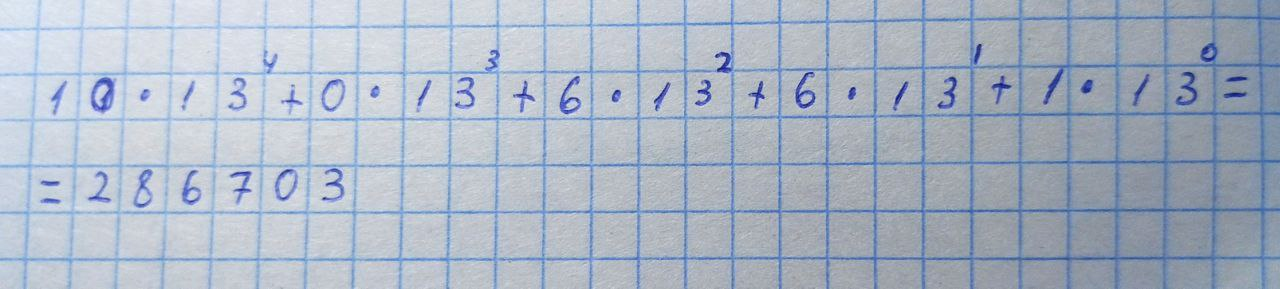 10·13⁴+0·13³+6·13²+6·13¹+1·13⁰=
=286703